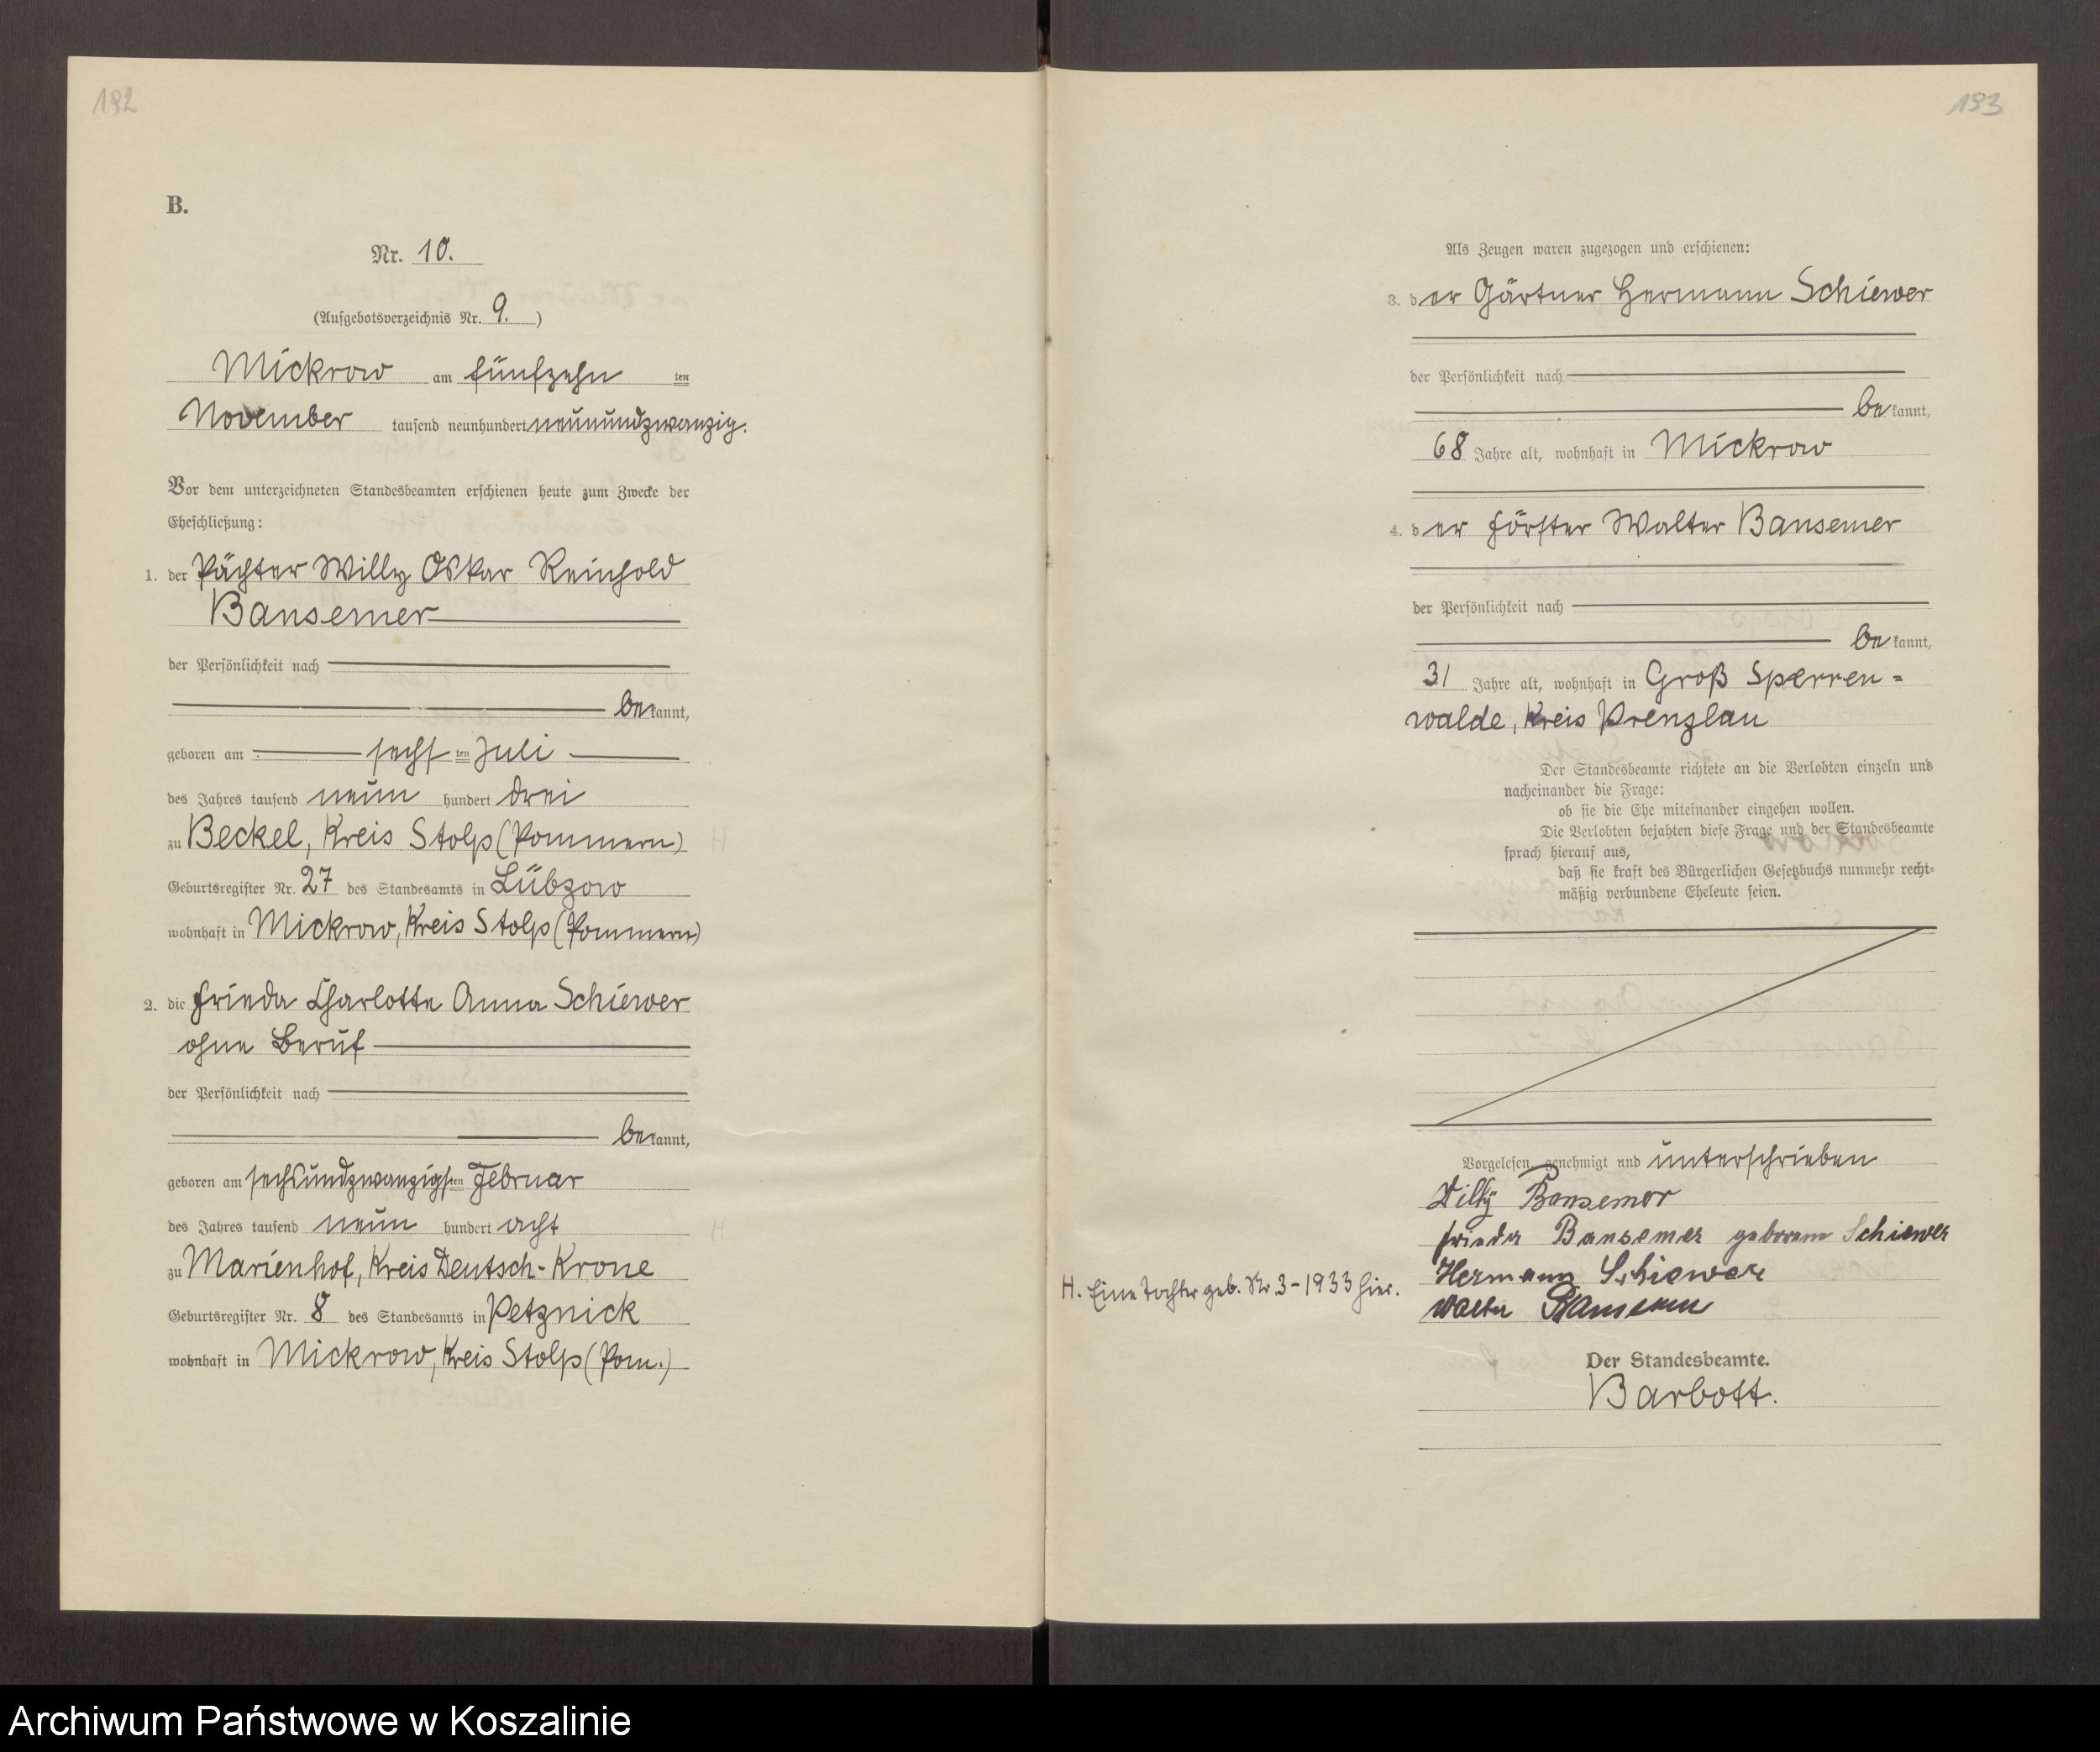 192
B.
Nr. 10.
(Aufgebotsverzeichnis Nr. 9.)
Mickrow am fünfzehn ten
November tausend neunhundert neunundzwanzig.
Vor dem unterzeichneten Standesbeamten erschienen heute zum Zwecke der
Eheschließung:
1. der Pächter Willy Oskar Reinhold
Bansemer
der Persönlichkeit nach
be kannt,
geboren am sechs ten Juli
des Jahres tausend neun hundert drei
zu Beckel, Kreis Stolp (Pommern)
Geburtsregister Nr. 27 des Standesamts in Lübzow
wohnhaft in Mickrow, Kreis Stolp (Pommern)
2. die Frieda Charlotte Anna Schiewer
ohne Beruf
der Persönlichkeit nach
be kannt,
geboren am sechsundzwanzigs ten Februar
des Jahres tausend neun hundert acht
zu Marienhof, Kreis Deutsch-Krone
Geburtsregister Nr. 8 des Standesamts in Petznick
wohnhaft in Mickrow, Kreis Stolp (Pom.)
193
Als Zeugen waren zugezogen und erschienen:
3. der Gärtner Hermann Schiewer
der Persönlichkeit nach
be kannt,
68 Jahre alt, wohnhaft in Mickrow
4. der Förster Walter Bansemer
der Persönlichkeit nach
be kannt,
31 Jahre alt, wohnhaft in Groß Sperren=
walde, Kreis Prenzlau
Der Standesbeamte richtete an die Verlobten einzeln und
nacheinander die Frage:
ob sie die Ehe miteinander eingehen wollen.
Die Verlobten bejahten diese Frage und der Standesbeamte
sprach hierauf aus,
daß sie kraft des Bürgerlichen Gesetzbuchs nunmehr recht=
mäßig verbundene Eheleute seien.
Vorgelesen, genehmigt und unterschrieben
Willy Bansemer
Frieda Bansemer geborene Schiewer
Hermann Schiewer
H. Eine Tochter geb. Nr. 3-1933 hier.
Walter Bansemer
Der Standesbeamte.
Barbott.
Archiwum Państwowe w Koszalinie